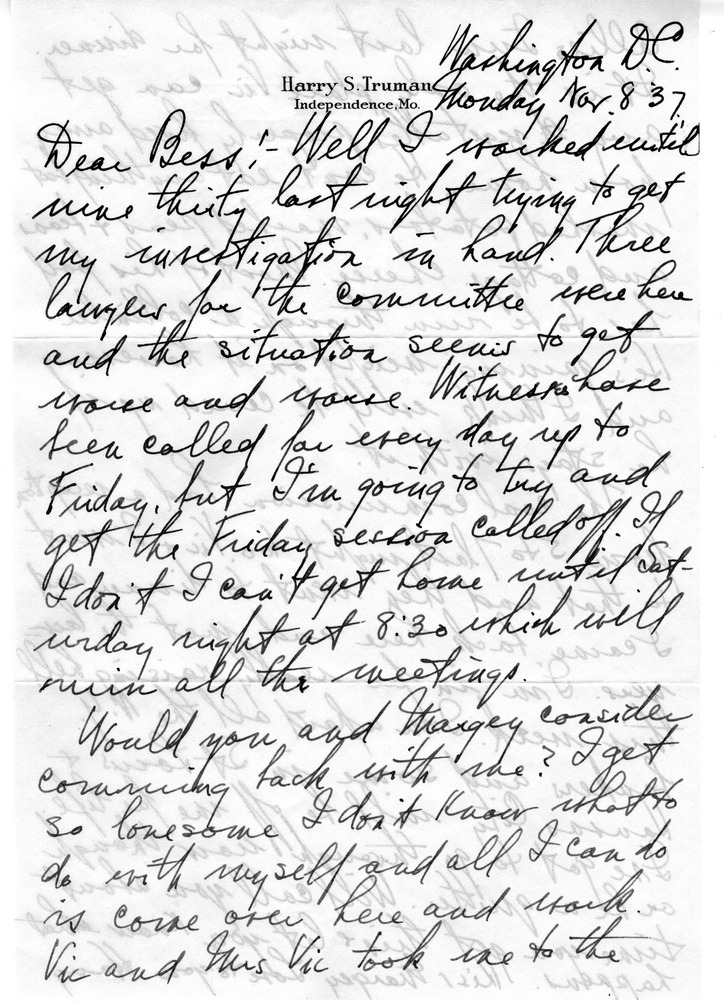 Washington D.C.
Harry S. Truman
Independence, Mo.
Monday Nov. 8 '37
Dear Bess:- Well I worked until
nine thirty last night trying to get
my investigation in hand. Three
lawyers for the committee were here
and the situation seems to get
worse and worse. Witnesses have
been called for every day up to
Friday, but I'm going to try and
get the Friday session called off. If
I don't I can't get home until Sat-
urday night at 8:30 which will
ruin all the meetings.
Would you and Margey consider
comming back with me? I get
so lonesome I don't know what to
do with myself and all I can do
is come over here and work.
Vic and Mrs Vic took me to the